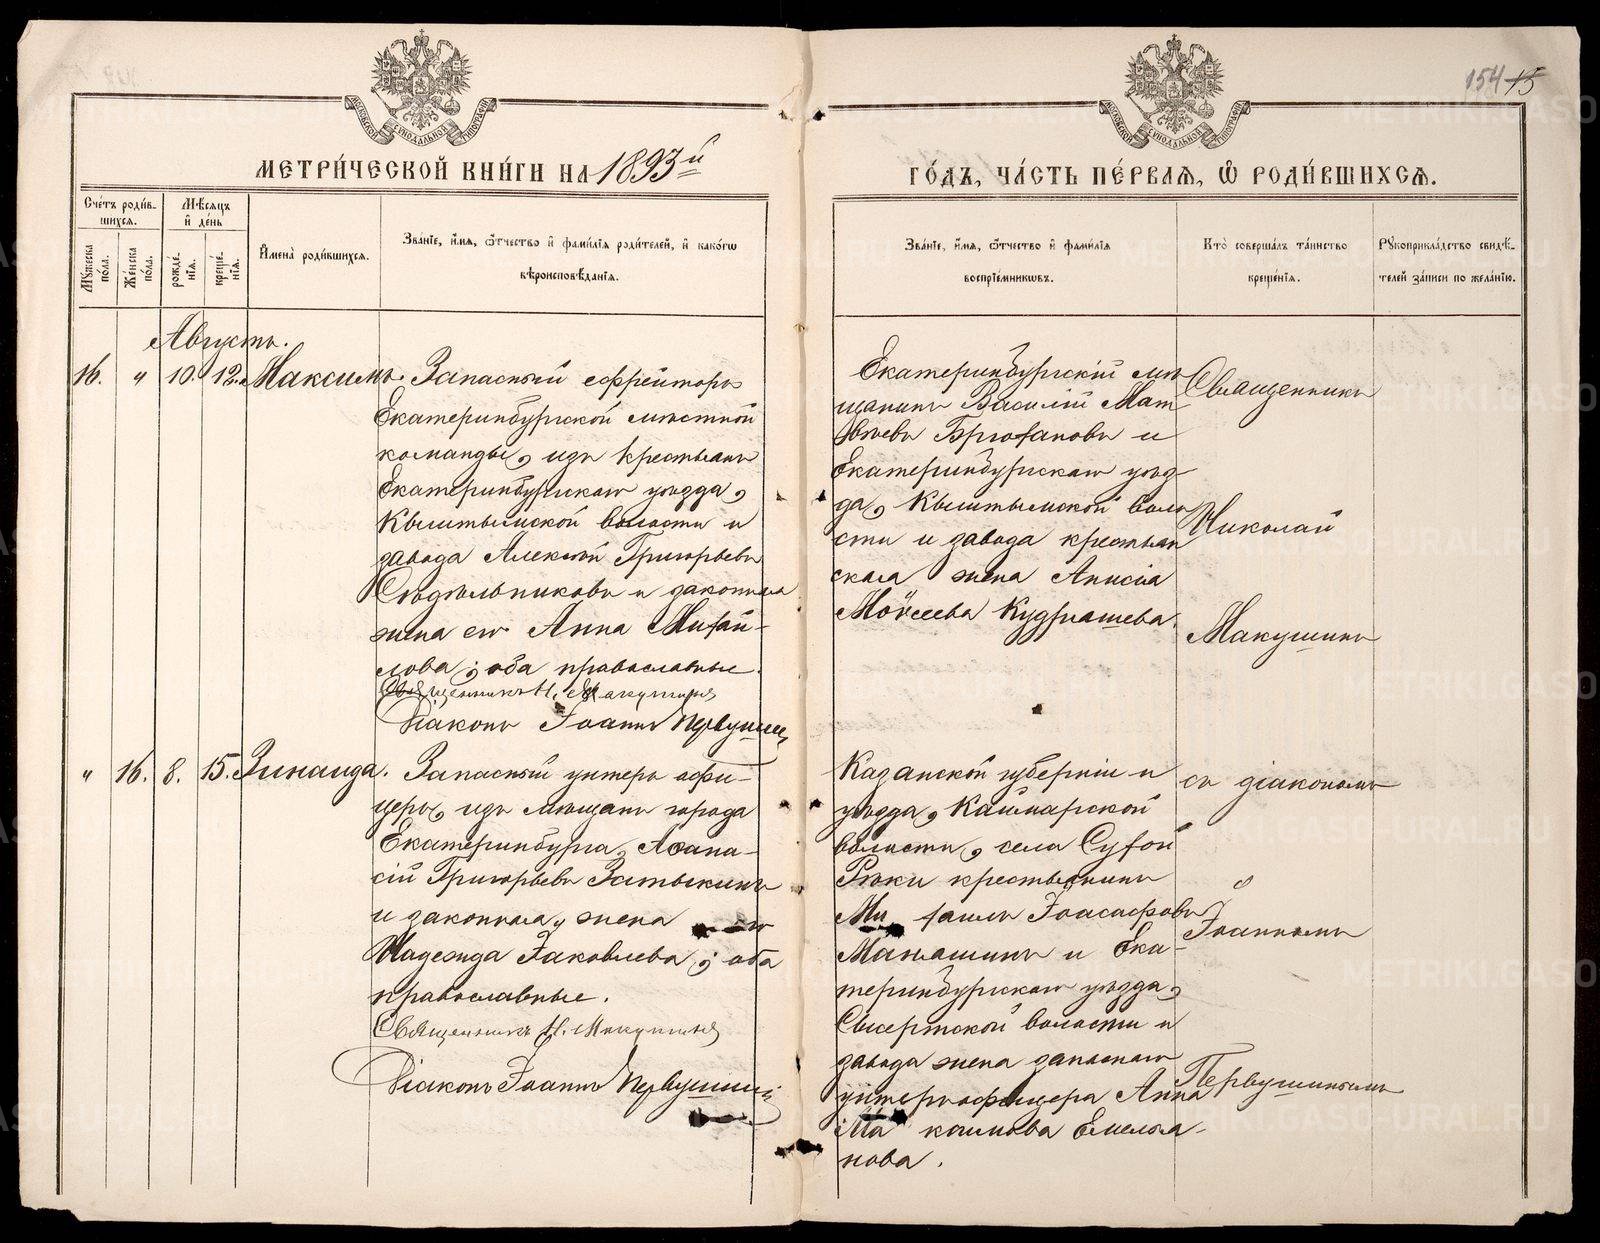 154 15
МОСКОВСКОЙ СѴНОДАЛЬНОЙ ТИПОГРАФІИ
МОСКОВСКОЙ СѴНОДАЛЬНОЙ ТИПОГРАФІИ
МЕТРИ́ЧЕСКОЙ КНИ́ГИ НА 1893й
ГО́ДЪ, ЧА́СТЬ ПЕ́РВАѦ, Ѡ РОДИ́ВШИХСѦ.
Сче́тъ роди́в-
шихся.
Мѣ́сяцъ
и҆ де́нь
Мꙋ́жеска по́ла.
Же́нска по́ла.
рожде́нїѧ.
креще́нїѧ.
И҆мена̀ роди́вшихсѧ.
Зва́нїе, и҆́мѧ, ѻ҆́тчество и҆ фами́лїѧ роди́телей, и҆ како́гѡ
вѣроисповѣ́данїѧ.
Зва́нїе, и҆́мѧ, ѻ҆́тчество и҆ фами́лїѧ
воспрїе́мникѡвъ.
Кто̀ соверша́лъ та́инство
креще́нїѧ.
Рꙋкоприкла́дство свидѣ́-
телей за́писи по жела́нїю.
Августъ.
16. " 10. 12. Максимъ.
Запасный ефрейторъ
Екатеринбургской мѣстной
команды, изъ крестьянъ
Екатеринбургскаго уѣзда,
Кыштымской волости и
завода Алексѣй Григорьевъ
Сѣдѣльниковъ и законная
жена его Анна Михай-
лова; оба православные.
Священникъ Н. Макушинъ
Діаконъ Іоаннъ Первушинъ
Екатеринбургскій мѣ-
щанинъ Василій Мат
вѣевъ Брюхановъ и
Екатеринбургскаго уѣз-
да, Кыштымской воло
сти и завода крестьян
ская жена Анисія
Моѵсеева Кудряшева.
Священникъ
Николай
Макушинъ
" 16. 8. 15. Зинаида.
Запасный унтеръ офи-
церъ, изъ мѣщанъ города
Екатеринбурга, Аѳана-
сій Григорьевъ Затыкинъ
и законная жена его
Надежда Іаковлева; оба
православные.
Священникъ Н. Макушинъ
Діаконъ Іоаннъ Первушинъ
Казанской губерніи и
уѣзда, Каймарской
волости, села Сухой
Рѣки крестьянинъ
Ми хаилъ Іоасафовъ
Маняшинъ и Ека-
теринбургскаго уѣзда,
Сысертской волости и
завода жена запаснаго
унтеръ-офицера Анна
Ма кимова Емелья-
нова.
съ діакономъ
Іоанномъ
Первушинымъ